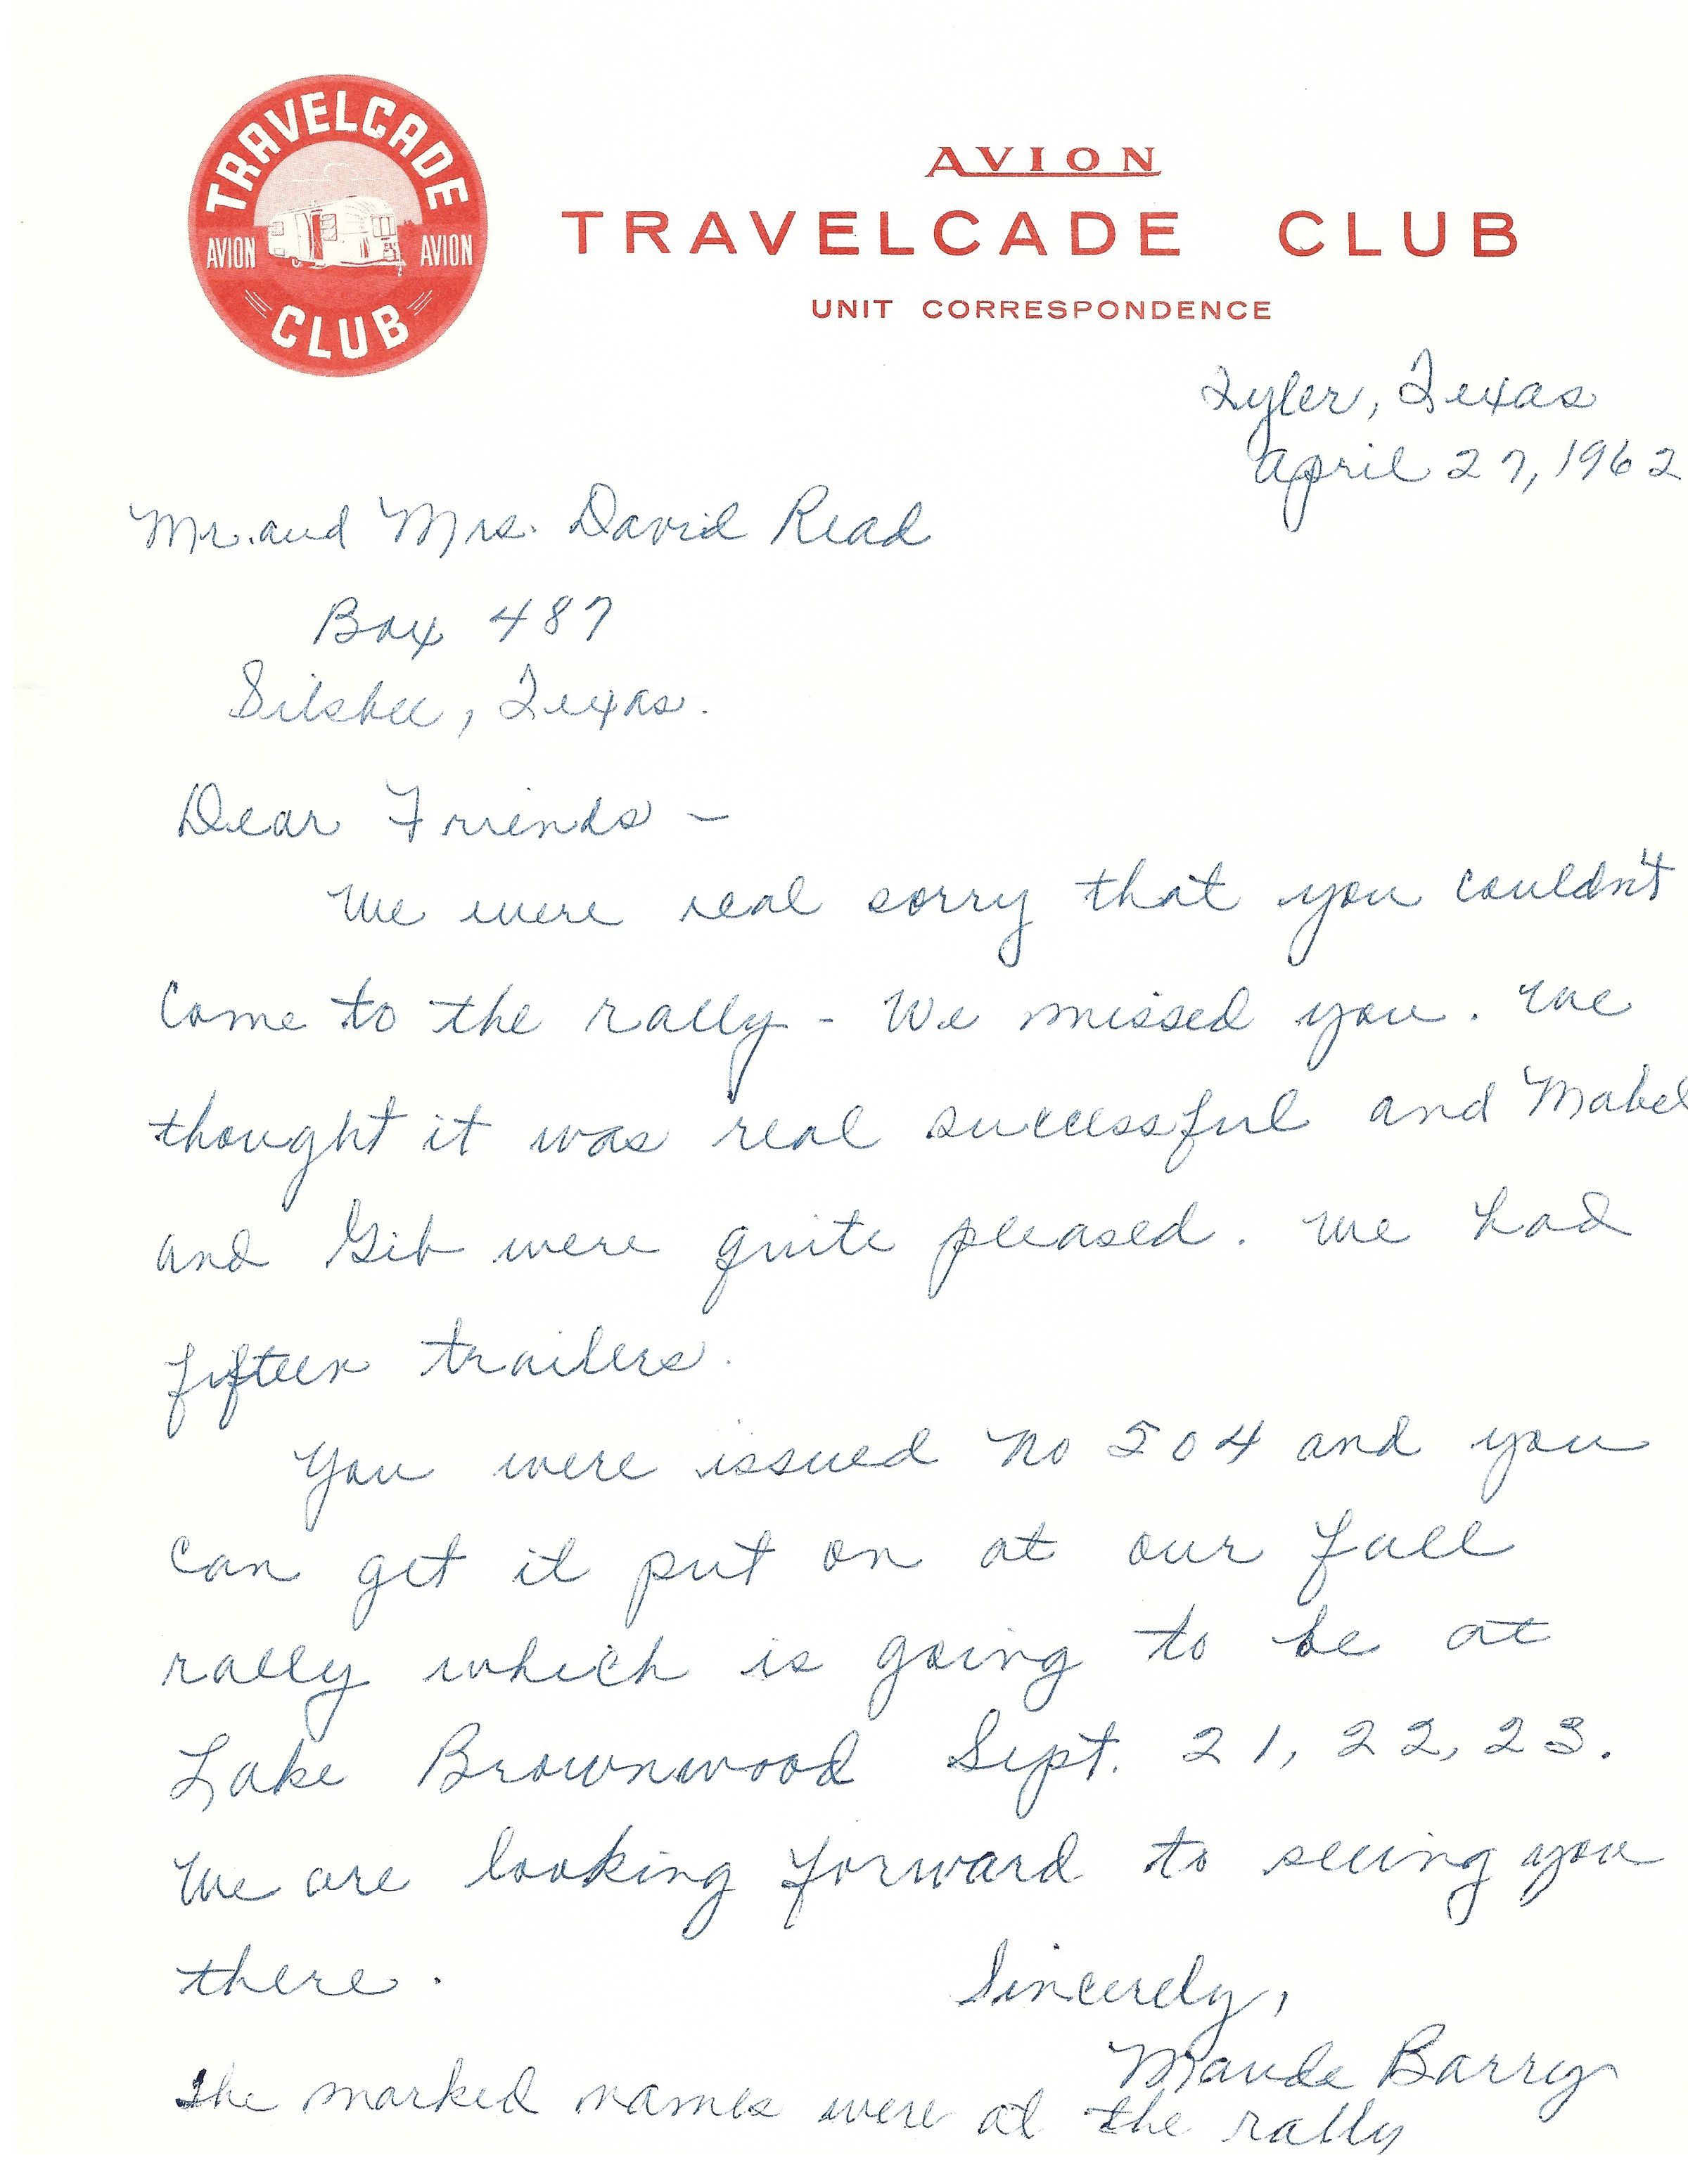 TRAVELCADE
AVION AVION
CLUB
AVION
TRAVELCADE CLUB
UNIT CORRESPONDENCE
Tyler, Texas
April 27, 1962
Mr. and Mrs. David Read
Box 487
Silsbee, Texas.
Dear Friends -
We were real sorry that you couldn't
come to the rally - We missed you. We
thought it was real successful and Mabel
and Gib were quite pleased. We had
fifteen trailers.
You were issued No 504 and you
can get it put on at our fall
rally which is going to be at
Lake Brownwood Sept. 21, 22, 23.
We are looking forward to seeing you
there.
Sincerely,
Maude Barry
The marked names were at the rally